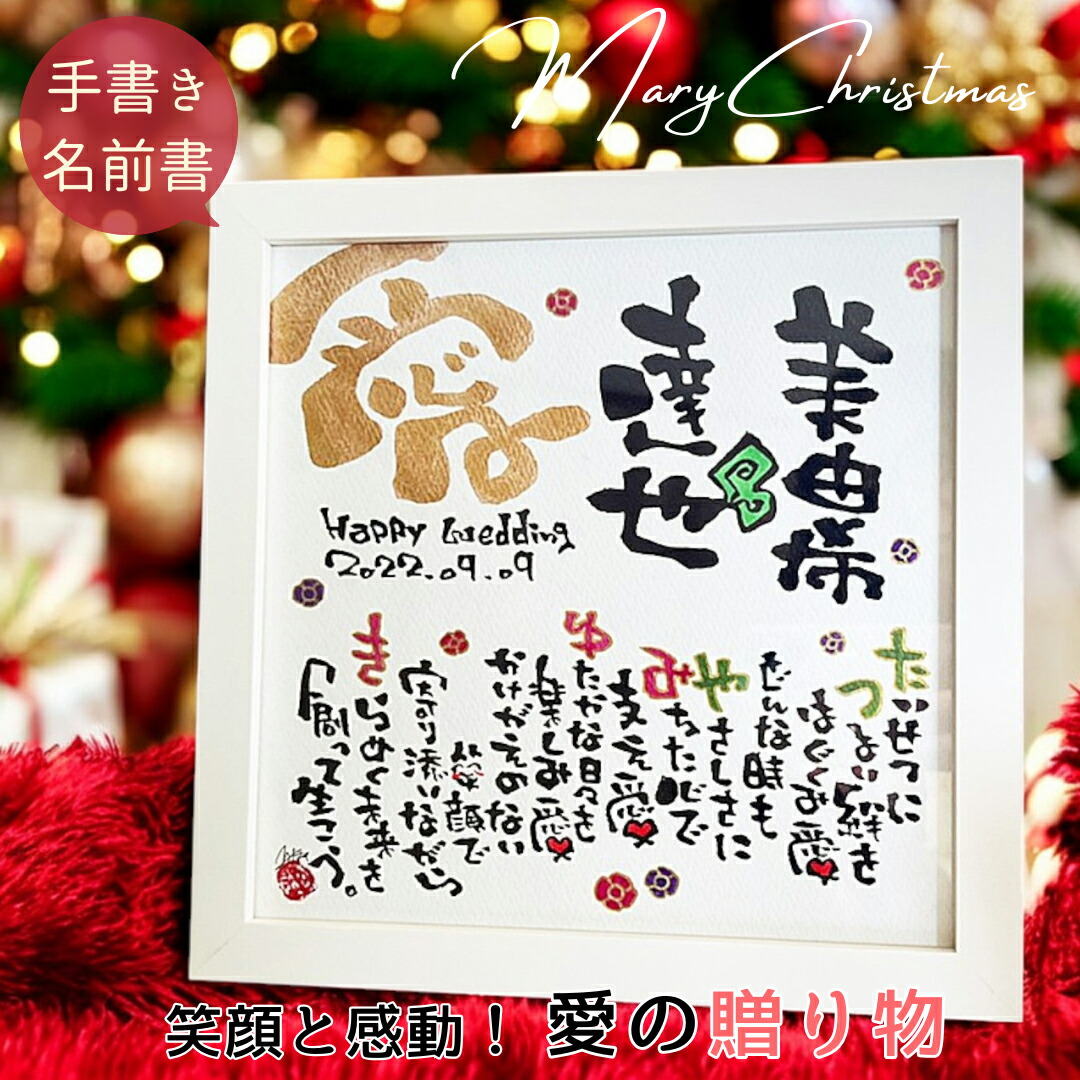 手書き
名前書
Mary Christmas
美由希
&
達也
愛
Happy Wedding
2022.09.09
たいせつに
つよい絆を
はぐくみ愛
どんな時も
やさしさに
みちた心で
支え愛
ゆたかな日々を
楽しみ愛
かけがえのない
笑顔で
寄り添いながら
きらめく未来を
創って生こう。
笑顔と感動！愛の贈り物